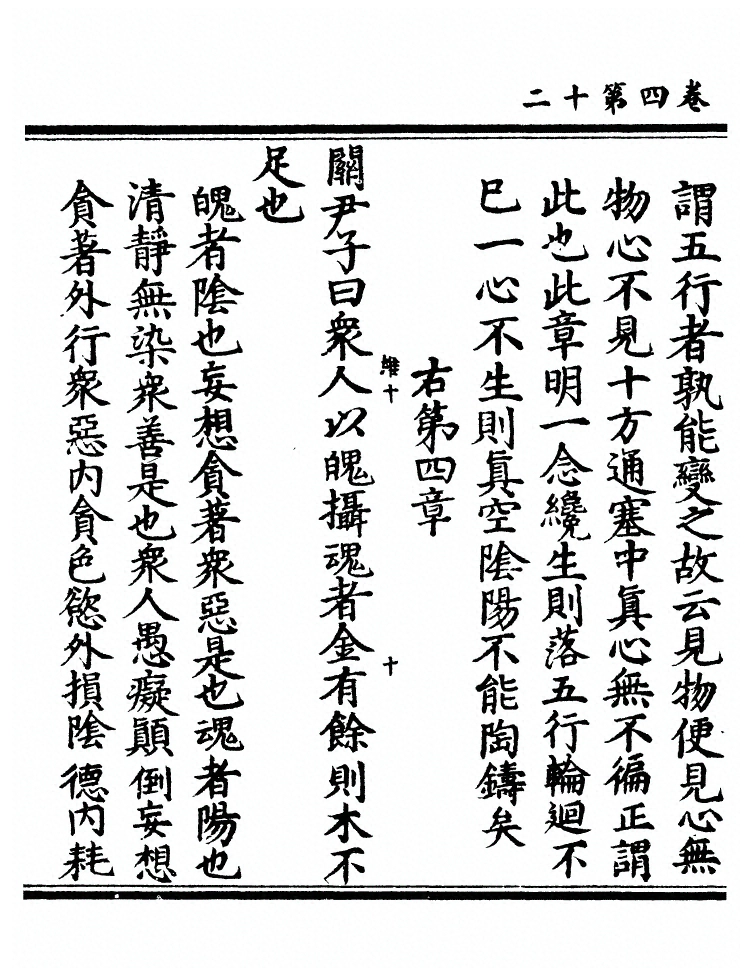 卷四第十二
謂五行者孰能變之故云見物便見心無
物心不見十方通塞中眞心無不徧正謂
此也此章明一念纔生則落五行輪迴不
巳一心不生則眞空陰陽不能陶鑄矣
右第四章
維十
十
關尹子曰衆人以魄攝魂者金有餘則木不
足也
魄者陰也妄想貪著衆惡是也魂者陽也
清靜無染衆善是也衆人愚癡顚倒妄想
貪著外行衆惡內貪色慾外損陰德內耗